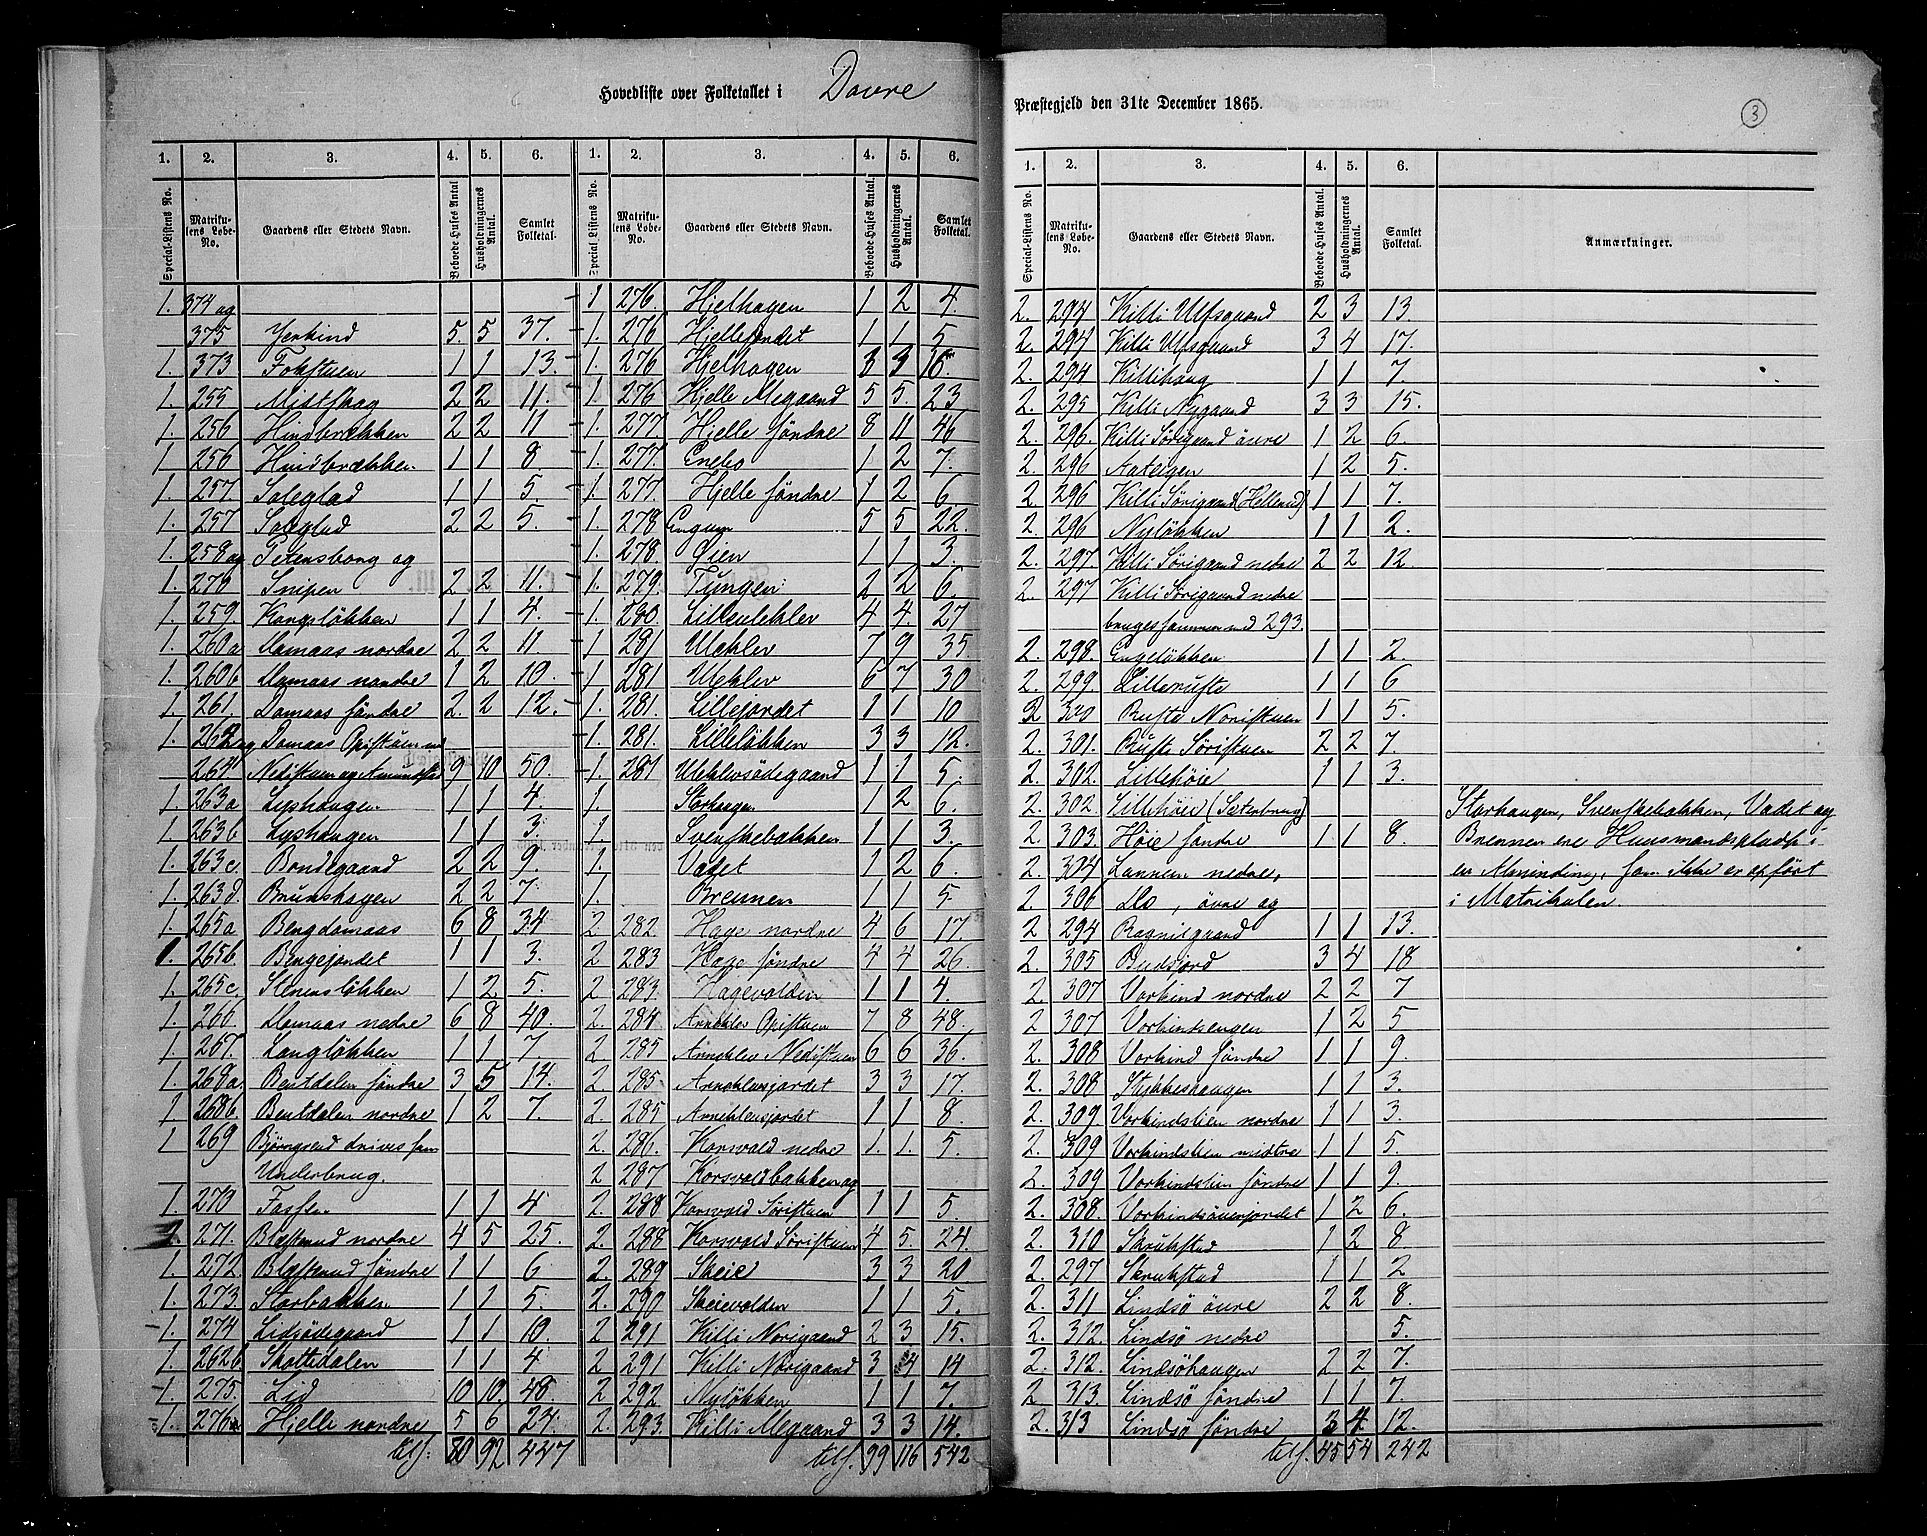 Hovedliste over Folketallet i Dovre
1. 2. 3. 4. 5. 6. 1. 2. 3. 4. 5. 6.
Special-Listens No. Matrikulens Løbe-No. Gaardens eller Stedets Navn. Beboede Huses Antal Husholdningernes Antal. Samlet Folketal. Special-Listens No. Matrikulens Løbe-No. Gaardens eller Stedets Navn. Beboede Huses Antal. Husholdningernes Antal. Samlet Folketal.
1. 374 og
375 Jerkind 5. 5 37.
1. 373 Fokstuen 1 1 13.
1. 255 Midtskog 2 2 11.
1. 256 Hindbrækken 2 2 11
1. 256 Hindbrækken. 1 1 8
1. 257. Soleglad 1 1 5.
1. 257 Soleglad 2 2 5.
1. 258 og Petersborg og
1. 270 Snipen 2 2 11.
1. 259. Kongsløkken 1 1 4.
1. 260a Domaas nordre 2 2 11
1. 260b Domaas nordre 1 2 10.
1. 261. Domaas søndre 2. 2 12.
1. 262 og Domaas Opistuen med
264 Nedistuen og Amundstad 9 10 50.
1. 263a Lyshaugen. 1 1 4.
1. 263b Lyshaugen 1 1 3.
1. 263c. Bondegaard 2 2 9.
1. 263d. Brunshagen 2 2 7.
1. 265a Bergdomaas 6 8 34
1. 265b. Bergejordet 1 1 3.
1. 265c. Stenersløkken 1 2. 5.
1. 266. Domaas nedre 6 8 40.
1. 267. Langløkken 1 1 7.
1. 268a. Bentdalen søndre 3 5 14.
1 268b. Bentdalen nordre 1 2 7
1 269 Bjørnsrud drives som
Underbrug.
1. 270 Fossen. 1 1 4
1. 271. Blæsterud nordre 4 5 25.
1. 272. Blæsterud søndre 1 1 6
1. 273. Storbakken. 1 1 5.
1. 274 Lidsødegaard 1 1 10
1. 262b. Skottedalen 1 1 4
1. 275. Lid 10 10. 48.
1. 276a Hjelle nordre 5 6 24.
tils. 80 92 447
1 276. Hjelhagen 1 2 4.
1. 276 Hjellejordet 1 1 5
1. 276 Hjelhagen 3 3 16.
1. 276 Hjelle Megaard 5 5. 23
1. 277 Hjelle søndre 8 11 46
1. 277. Enebo 1 2 7.
1. 277. Hjelle søndre 1 2 6
1. 278. 5 5 22
1. 278. Lien 1 1 3.
1. 279. Tungen 2 2 6.
1. 280. Lilleuleklev 4 4 27
1 281 Uleklev 7 9 35.
1 281 Uleklev 6 7 30
1. 281. Lillejordet 1 1 10
1. 281. Lilleløkken 3 3 12.
1. 281 Uleklevsødegaard 1 1 5.
1. Storhaugen 1 2 6.
1. Svenskebakken 1 1 3.
1. Vadet 1 2 6.
1. Brennen 1 1 5.
2. 282. Hage nordre 4 6 17.
2 283 Hage søndre 4 4 26.
2. 283. Hagevolden 1 1 4.
2. 284 Arneklev Opistuen 7 8 48.
2. 285 Arneklev Nedistuen 6 6 36.
2. 285. Arneklevsjordet 3 3 17.
2. 285 Arneklevsjordet 1 1 8.
2. 286. Korsvold nedre 1. 1. 5.
2 287 Korsvoldbakken og
2. 288 Korsvold Søristuen 1 1 5.
2. 288 Korsvold Søristuen 4 5. 24.
2. 289 Skeie 3 3 20
2. 290 Skeievolden 1 1 5.
2 291 Killi Norigaard 2 3 15.
2 291 Killi Norigaard 3 4 14
2 292 Nyløkken 1 1 7.
2. 293. Killi Megaard 3 3 14.
tils. 99 116 542
Præstegjeld den 31te December 1865.
3
1. 2. 3. 4. 5. 6.
Special-Listens No. Matrikulens Løbe-No. Gaardens eller Stedets Navn. Beboede Huses Antal. Husholdningernes Antal. Samlet Folketal. Anmærkninger.
2. 294 Killi Ulfsgaard 2 3 13.
2. 294 Killi Ulfsgaard 3 4 17.
2. 294 Killihaug 1 1 7.
2. 295 Killi Nygaard 3 3 15.
2. 296. Killi Sørigaard øvre 1 2 6.
2. 296 Aateigen 1 2 5.
2. 296 Killi Sørigaard (Hellerud) 1 1 7.
2. 296 Nyløkken 1 1 2.
2. 297. Killi Sørigaard nedre 2 2 12
2. 297 Killi Sørigaard nedre
bruges sammen med 293.
2. 298. Engeløkken 1 1 2
2. 299. Lilleruste 1 1 6
2 300 Ruste Noristuen 1 1 5.
2. 301. Ruste Søristuen 2 2 7.
2. 302. Lillehøie 1 1 3.
2. 302. Lillehøie (Sæterbrug)
2. 303. Høie søndre 1 1 8
2. 304 Lannem nedre,
2. 306 Do, øvre og
2 294 Ragnilgaard 1 1 13.
2. 305 Budsjord 3 4 18
2. 307 Vorkind nordre 2 2 7
2. 307 Vorkindsengen 1 2 5
2. 308 Vorkind søndre 1 1 9.
2. 308 Stykkeshaugen 1 1 3.
2. 309. Vorkindslien nordre 1 1 3.
2. 309 Vorkindslien midtre 1 1 5.
2. 309 Vorkindslien søndre 1 1 9.
2. 308. Vorkindsøverjordet 1 2 6.
2. 310 Skrukstad 1 2 8
2. 297 Skrukstad 1 1 2
2. 311 Lindsø øvre 2 2 8.
2. 312. Lindsø nedre 5.
2. 312. Lindsøhaugen 2 2 7.
2. 313. Lindsø søndre 1 1 7.
2. 313 Lindsø søndre 3 4 12.
tils. 45 54 242
Storhaugen, Svenskebakken, Vadet og
Brennen ere Huusmandspladse i
en Alminding, som ikke er opført
i Matrikulen.